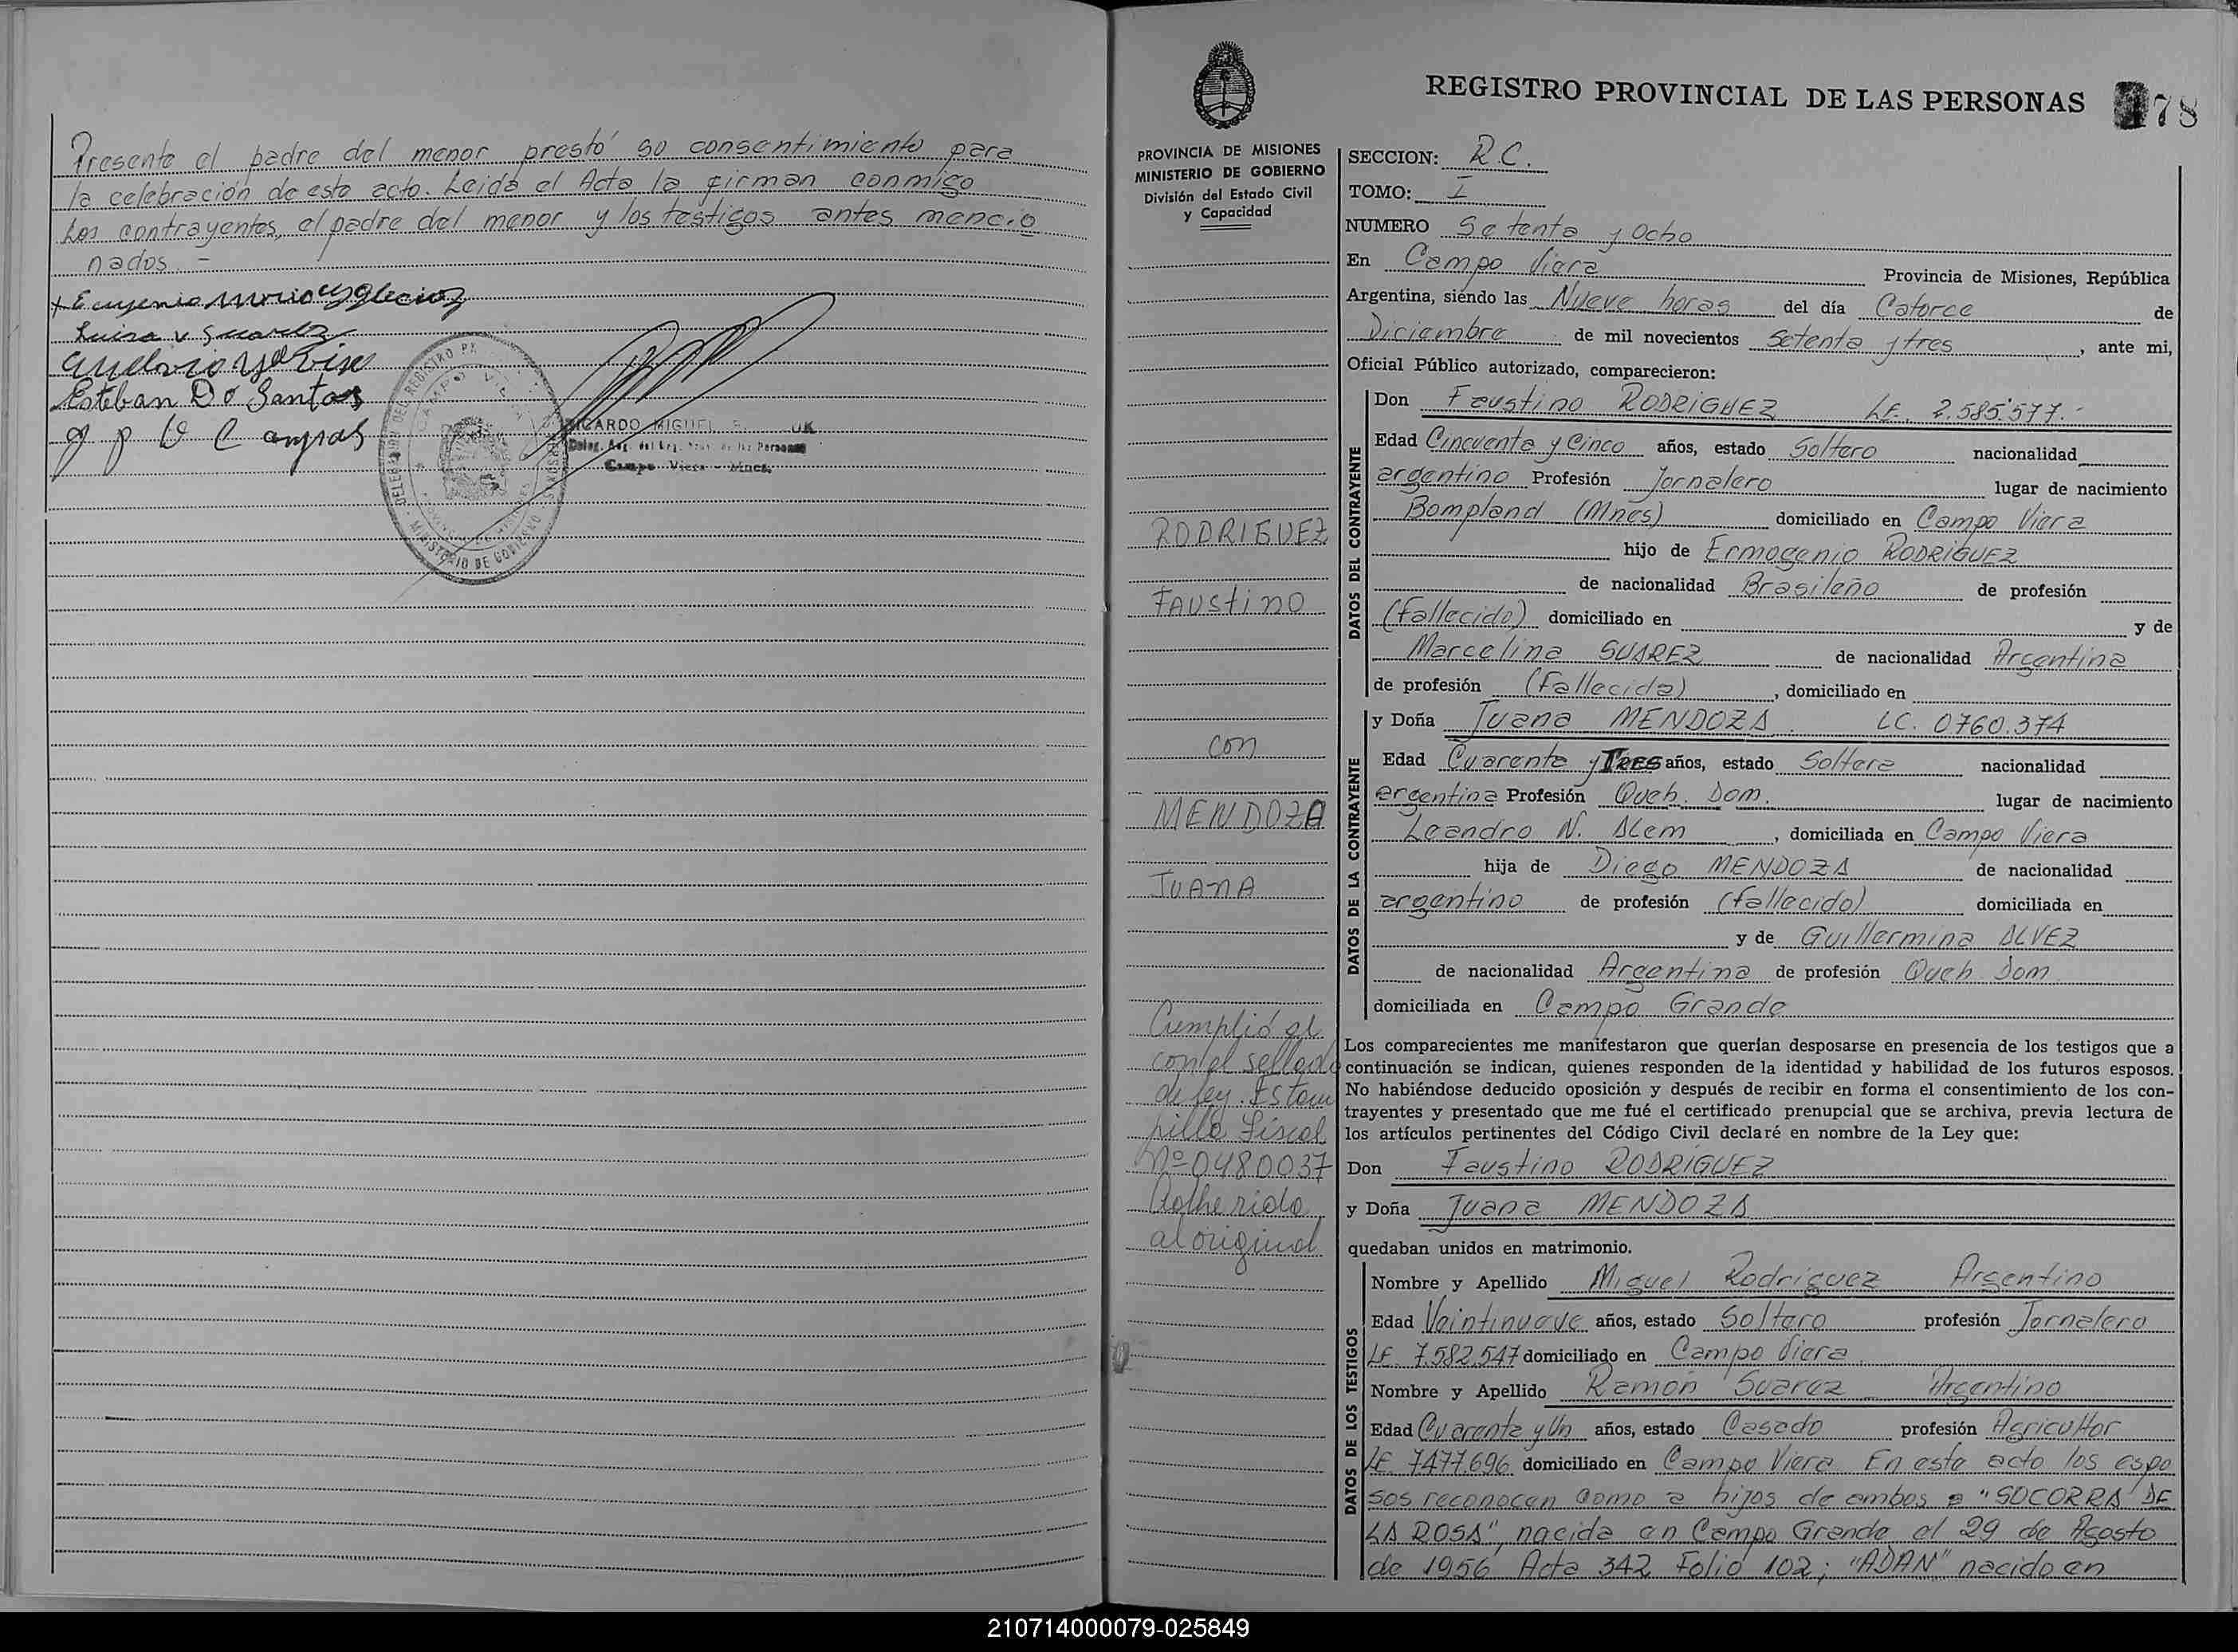 Presente el padre del menor prestó su consentimiento para
la celebración de este acto. Leída el Acta la firman conmigo
los contrayentes, el padre del menor y los testigos antes mencio
nados. -
Luisa v Suarez
Esteban Do Santos
RICARDO MIGUEL
Deleg. Reg. de las Personas
Campo Viera - Mnes.
REGISTRO PROVINCIAL DE LAS PERSONAS 178
PROVINCIA DE MISIONES
MINISTERIO DE GOBIERNO
División del Estado Civil
y Capacidad
RODRIGUEZ
FAUStinO
con
MENDOZA
JUANA
Cumplió el
con el sellado
de ley. Estam
pilla Fiscal
Nº 0480037
Adherida
al original
SECCION: R.C.
TOMO: I
NUMERO Setenta y Ocho
En Campo Viera Provincia de Misiones, República
Argentina, siendo las Nueve horas del día Catorce de
Diciembre de mil novecientos Setenta y tres, ante mi,
Oficial Público autorizado, comparecieron:
DATOS DEL CONTRAYENTE
Don Faustino RODRIGUEZ LE. 2.585.577.-
Edad Cincuenta y Cinco años, estado Soltero nacionalidad
argentino Profesión Jornalero lugar de nacimiento
Bompland (Mnes) domiciliado en Campo Viera
hijo de Ermogenio RODRIGUEZ
de nacionalidad Brasileño de profesión
(Fallecido) domiciliado en y de
Marcelina SUAREZ de nacionalidad Argentina
de profesión (Fallecida), domiciliado en
DATOS DE LA CONTRAYENTE
y Doña Juana MENDOZA. LC. 0760.374
Edad Cuarenta y TRES años, estado Soltera nacionalidad
argentina Profesión Queh. Dom. lugar de nacimiento
Leandro N. Alem, domiciliada en Campo Viera
hija de Diego MENDOZA de nacionalidad
argentino de profesión (fallecido) domiciliada en
y de Guillermina ALVEZ
de nacionalidad Argentina de profesión Queh Dom
domiciliada en Campo Grande
Los comparecientes me manifestaron que querían desposarse en presencia de los testigos que a
continuación se indican, quienes responden de la identidad y habilidad de los futuros esposos.
No habiéndose deducido oposición y después de recibir en forma el consentimiento de los con-
trayentes y presentado que me fué el certificado prenupcial que se archiva, previa lectura de
los artículos pertinentes del Código Civil declaré en nombre de la Ley que:
Don Faustino RODRIGUEZ
y Doña Juana MENDOZA
quedaban unidos en matrimonio.
DATOS DE LOS TESTIGOS
Nombre y Apellido Miguel Rodriguez Argentino
Edad Veintinueve años, estado Soltero profesión Jornalero
LE. 7.582.547 domiciliado en Campo Viera.
Nombre y Apellido Ramón Suarez Argentino
Edad Cuarenta y Un años, estado Casado profesión Agricultor
LE. 7477.696 domiciliado en Campo Viera En este acto los espo
sos reconocen como a hijos de ambos a "SOCORRA DE
LA ROSA", nacida en Campo Grande el 29 de Agosto
de 1956 Acta 342 Folio 102; "ADAN" nacido en
210714000079-025849